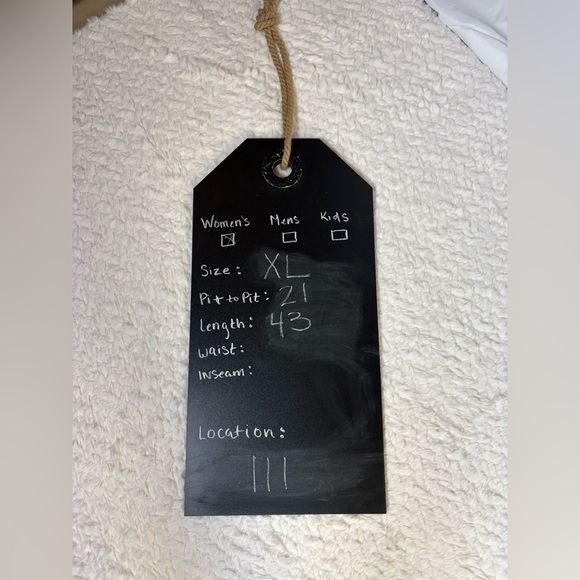 Women's Mens Kids
Size: XL
Pit to Pit: 21
Length: 43
Waist:
Inseam:
Location:
111